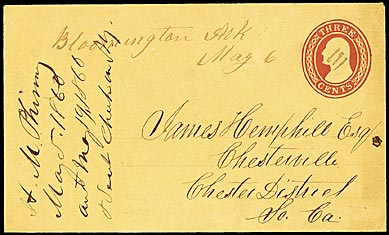 Bloomington Ark
May 6
THREE
CENTS
James Hemphill Esq
Chesterville
Chester District
So. Ca.
H. M.
May 5. 1860
May 19 1860